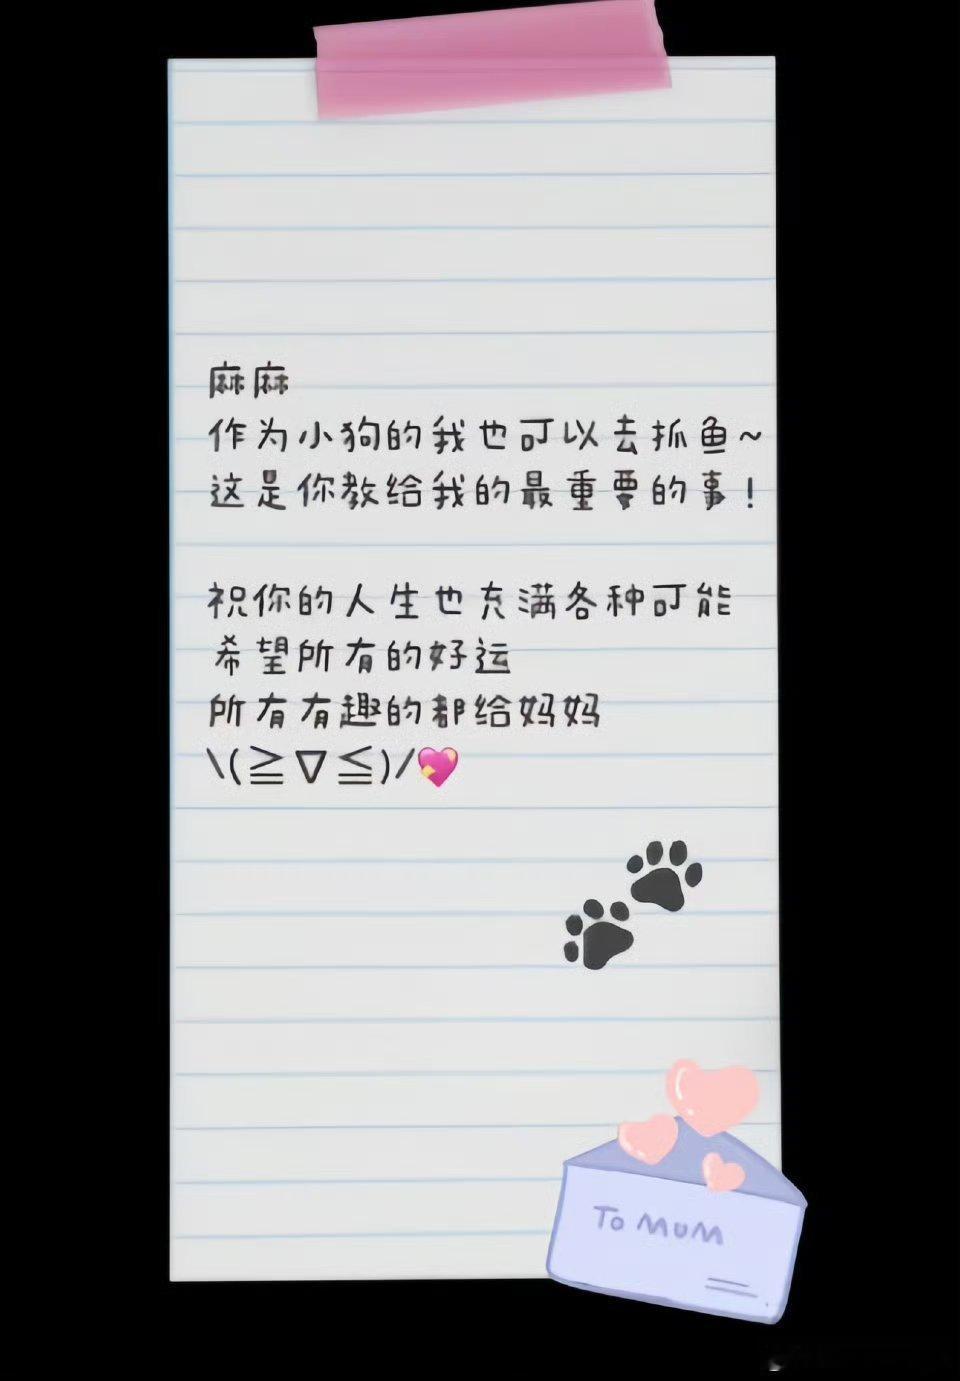 麻麻
作为小狗的我也可以去抓鱼~
这是你教给我的最重要的事！
祝你的人生也充满各种可能
希望所有的好运
所有有趣的都给妈妈
\(≧▽≦)/💖
TO MUM